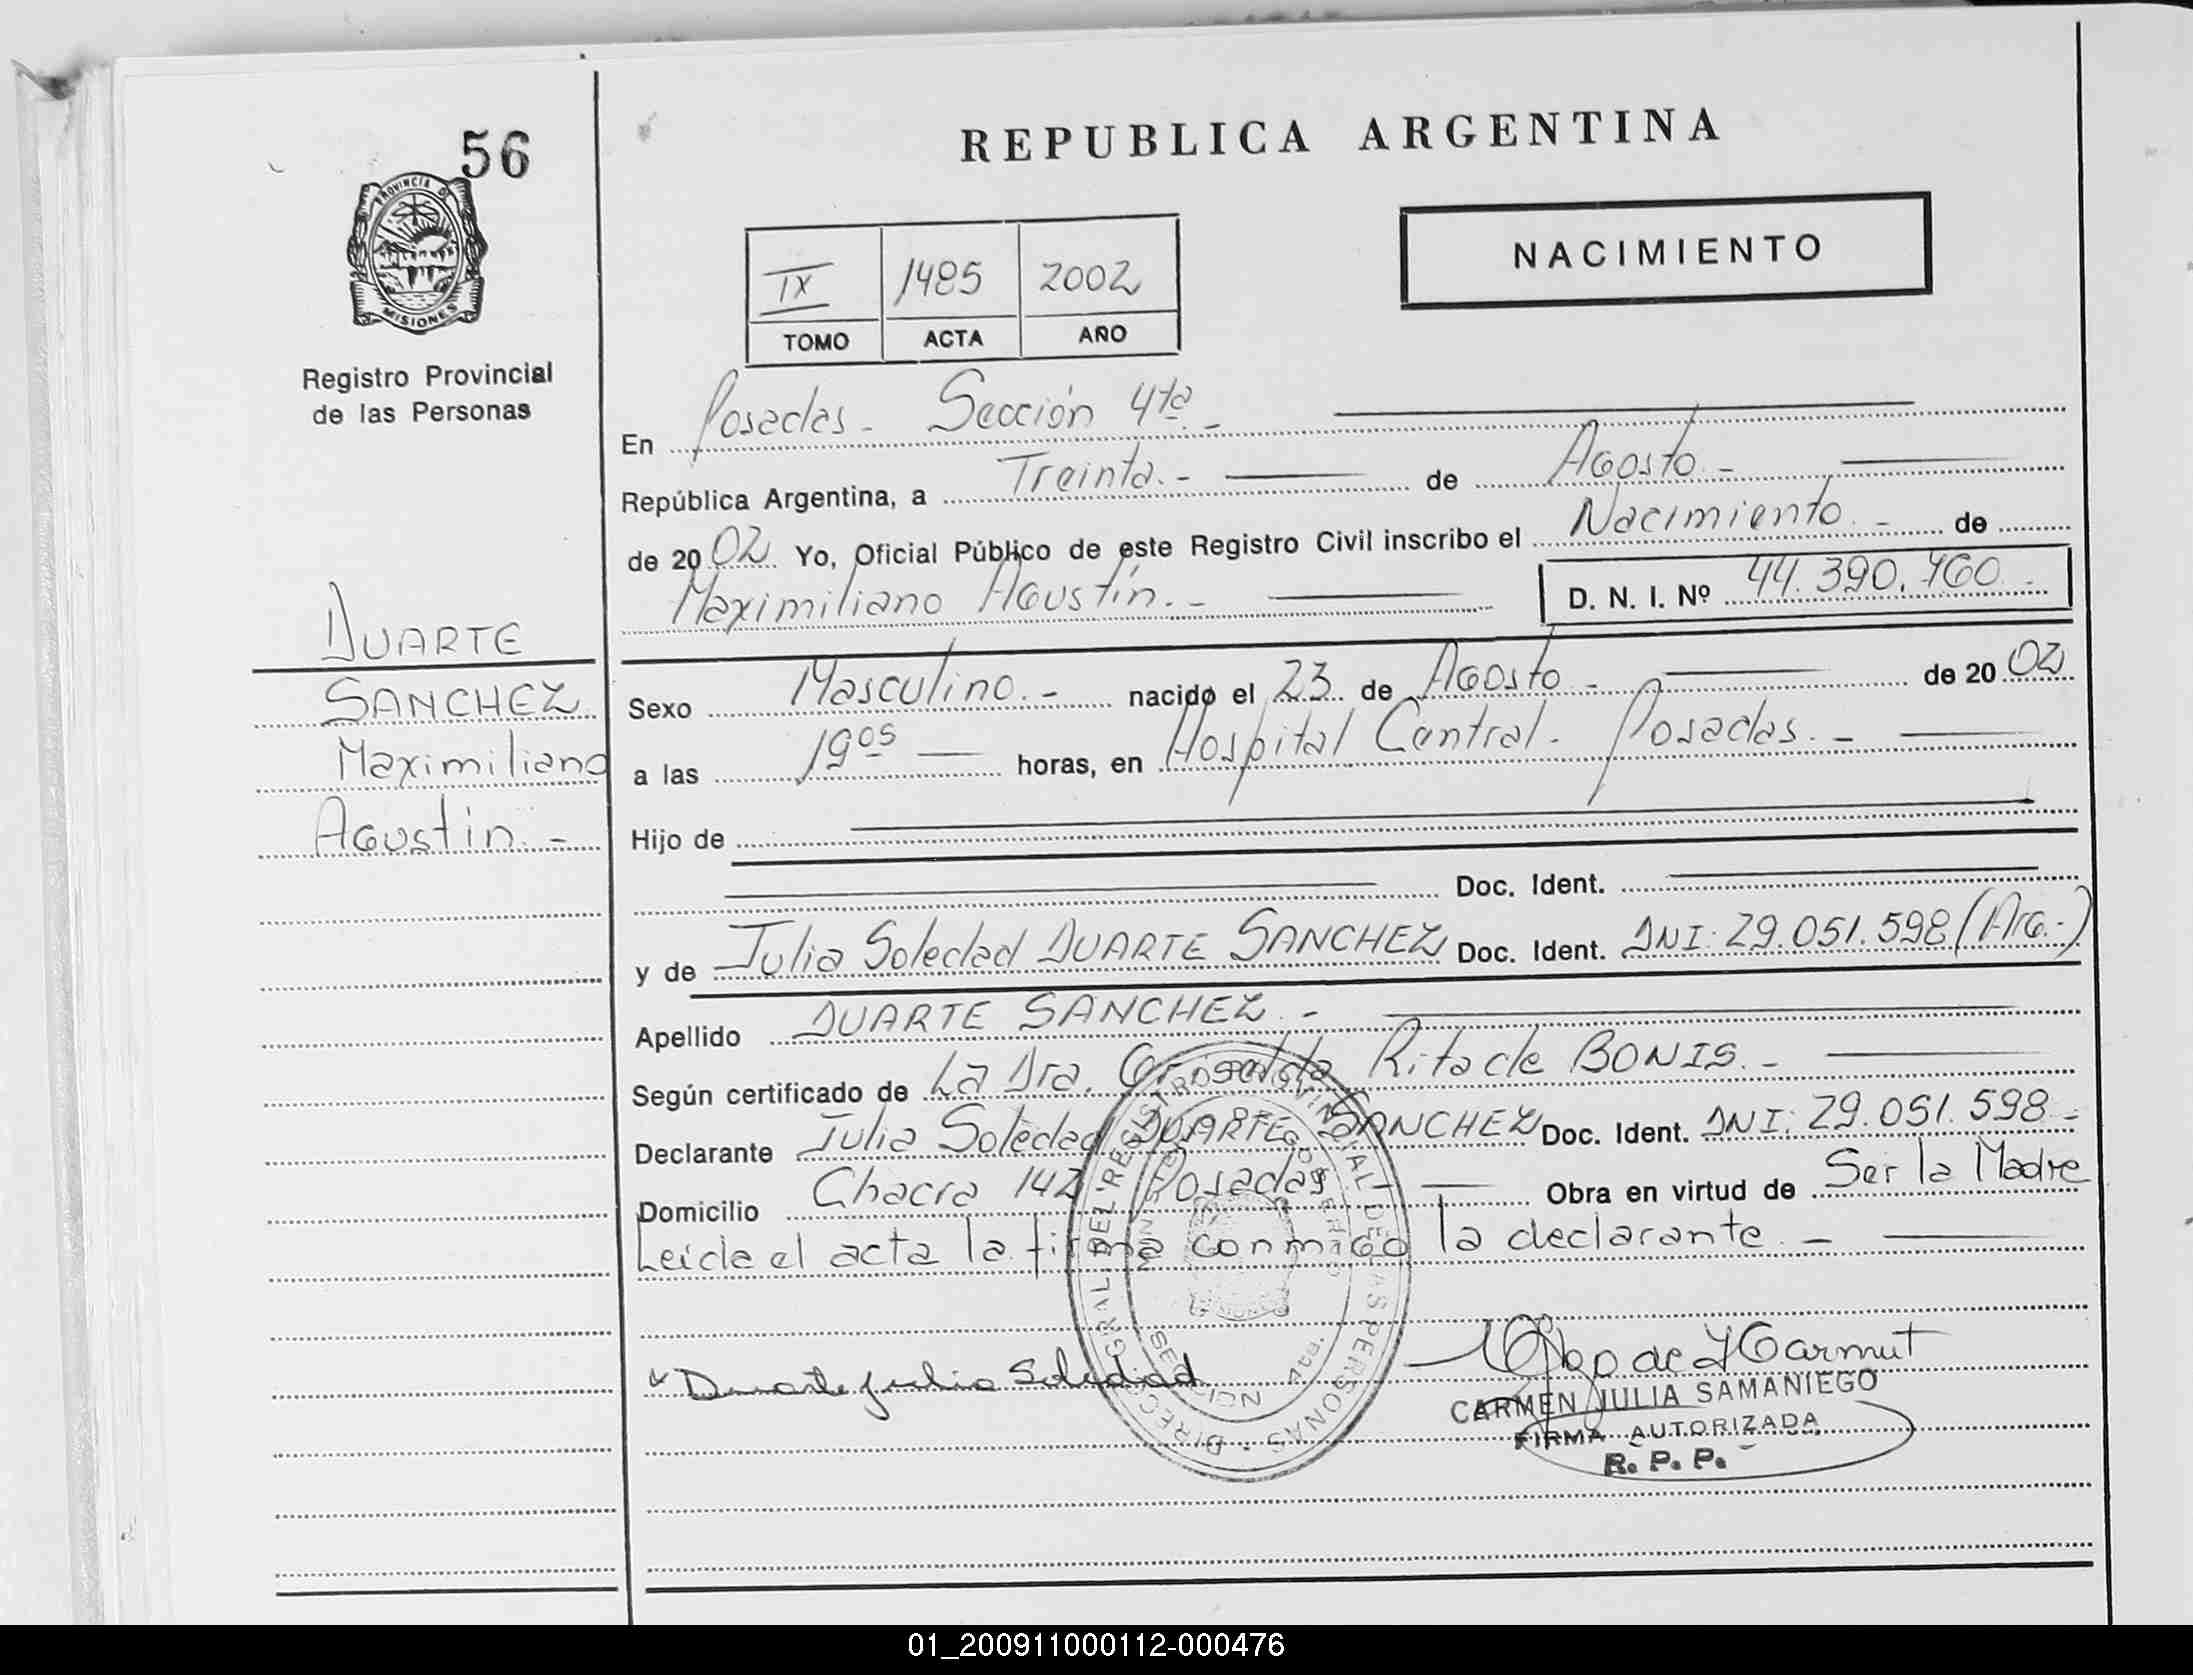 56
PROVINCIA DE
MISIONES
Registro Provincial
de las Personas
DUARTE
SANCHEZ
Maximiliano
Agustin.-
REPUBLICA ARGENTINA
NACIMIENTO
IX 1485 2002
TOMO ACTA AÑO
En Posadas - Sección 4ta.-
República Argentina, a Treinta.- de Agosto.-
de 2002 Yo, Oficial Público de este Registro Civil inscribo el Nacimiento.- de
Maximiliano Agustín.- D. N. I. Nº 44.390.460.-
Sexo Masculino.- nacido el 23 de Agosto.- de 2002
a las 19os horas, en Hospital Central. Posadas.-
Hijo de
Doc. Ident.
y de Julia Soledad DUARTE SANCHEZ Doc. Ident. DNI: 29.051.598 (Arg.-)
Apellido DUARTE SANCHEZ.-
Según certificado de La Dra. Griselda Rita de BONIS.-
Declarante Julia Soledad DUARTE SANCHEZ Doc. Ident. DNI: 29.051.598.-
Domicilio Chacra 142 Posadas - Obra en virtud de Ser la Madre
Leida el acta la firma conmigo la declarante.-
DIREC. GRAL. DEL REGISTRO PROVINCIAL DE LAS PERSONAS
SECCION 4ta.
Duarte Julia Soledad
CARMEN JULIA SAMANIEGO
FIRMA AUTORIZADA
R. P. P.
01_200911000112-000476